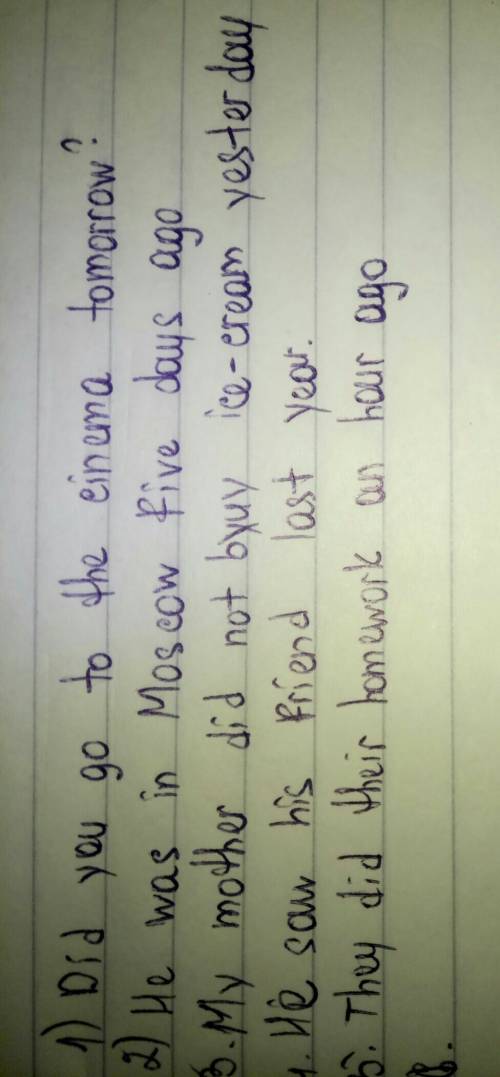 1) Did you go to the cinema tomorrow?
2) He was in Moscow five days ago
3. My mother did not buy ice-cream yesterday
4. He saw his friend last year.
5. They did their homework an hour ago